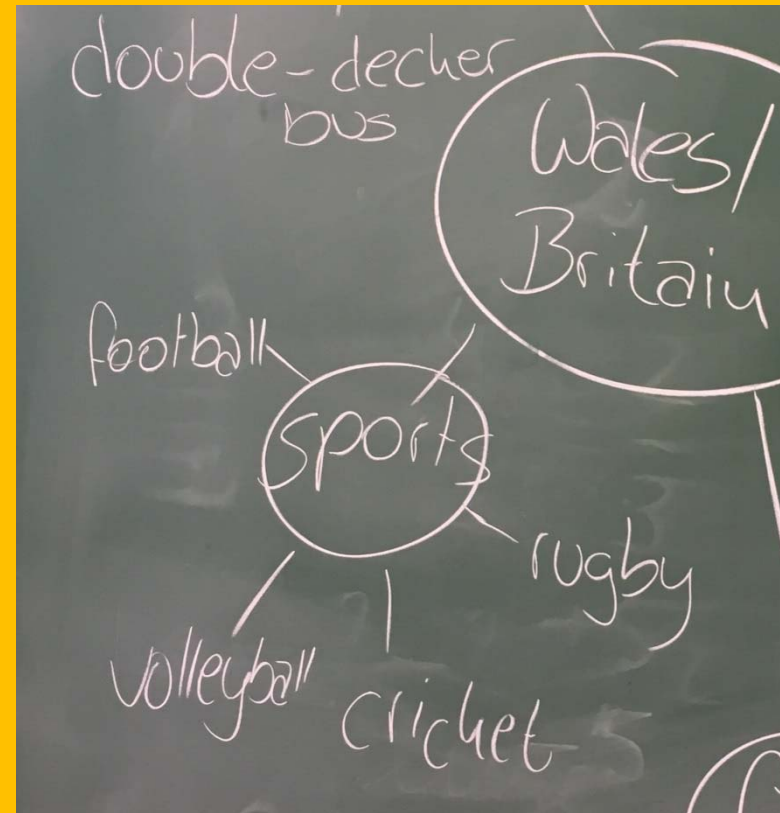 double-decker
bus
Wales/
Britain
football
sports
rugby
volleyball
cricket